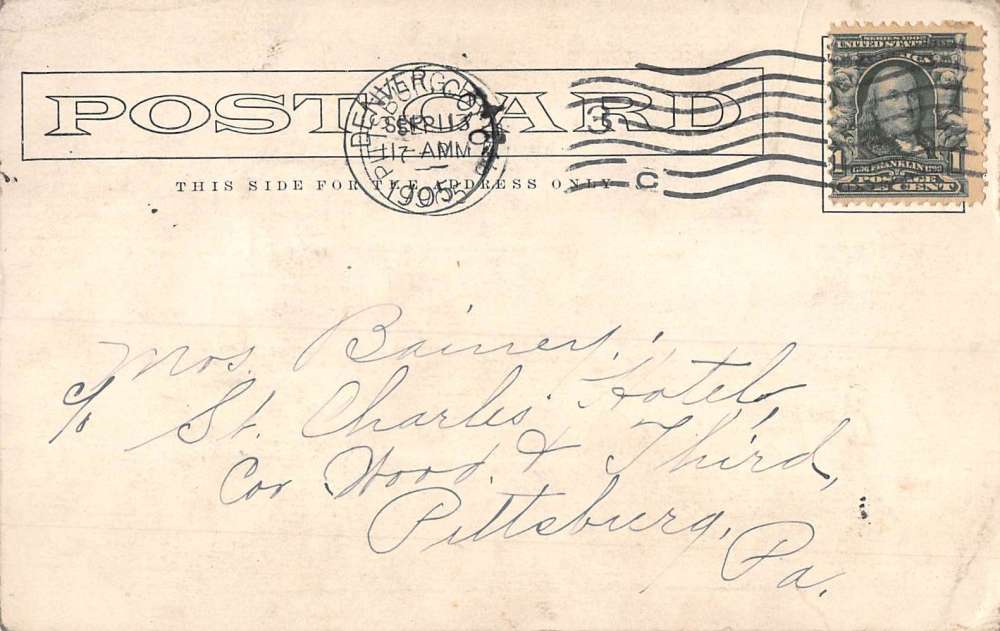 POST CARD
THIS SIDE FOR THE ADDRESS ONLY
DENVER COLO
SEP 11
AM
1905
C
SERIES 1902
UNITED STATES
FRANKLIN
1 1
POSTAGE
ONE CENT
Mrs.
c/o St. Charles Hotel,
Cor Wood & Third,
Pittsburg,
Pa.